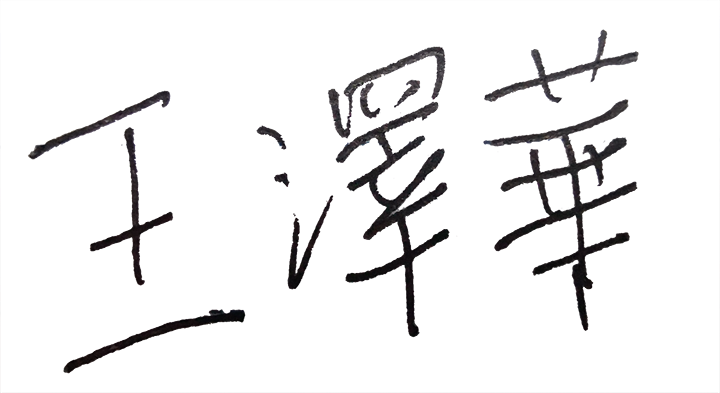 王澤華